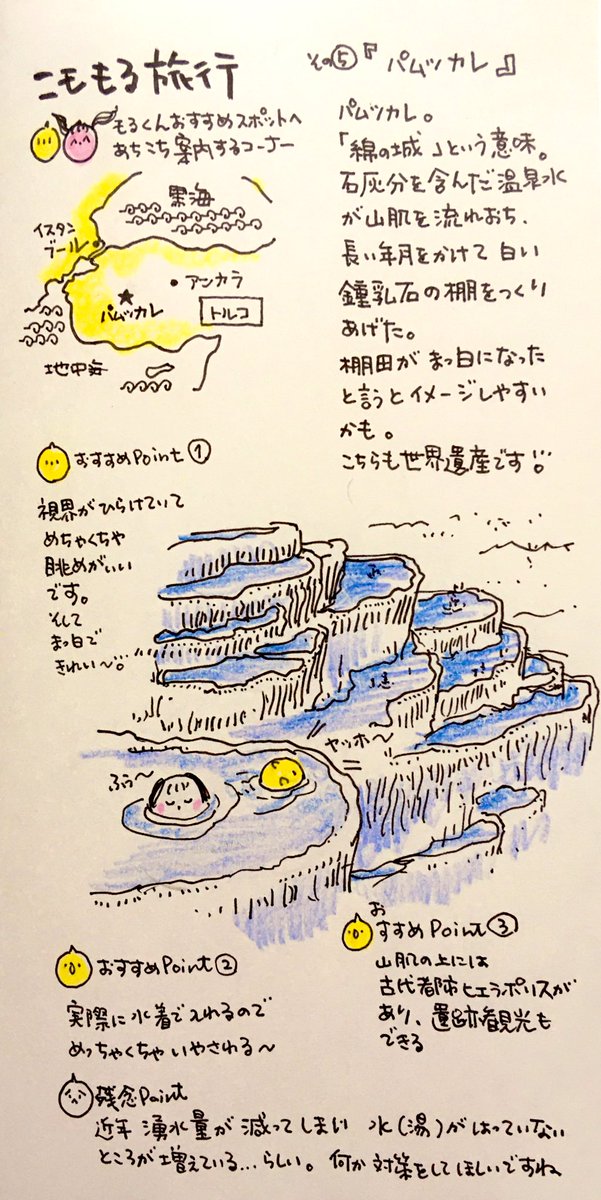 こももる旅行
その⑤『パムッカレ』
もるくんおすすめスポットへ
あちこち案内するコーナー
黒海
イスタン
ブール
アンカラ
パムッカレ
トルコ
地中海
パムッカレ。
「綿の城」という意味。
石灰分を含んだ温泉水
が山肌を流れおち、
長い年月をかけて白い
鍾乳石の棚をつくり
あげた。
棚田がまっ白になった
と言うとイメージしやすい
かも。
こちらも世界遺産です!!
おすすめPoint①
視界がひらけていて
めちゃくちゃ
眺めがいい
です。
そして
まっ白で
きれい〜。
ヤッホ〜
ふぅ〜
おすすめPoint②
実際に水着で入れるので
めっちゃくちゃいやされる〜
おすすめPoint③
山肌の上には
古代都市ヒエラポリスが
あり、遺跡観光も
できる
残念Point
近年湧水量が減ってしまい 水(湯)がはっていない
ところが増えている...らしい。何か対策をしてほしいですね